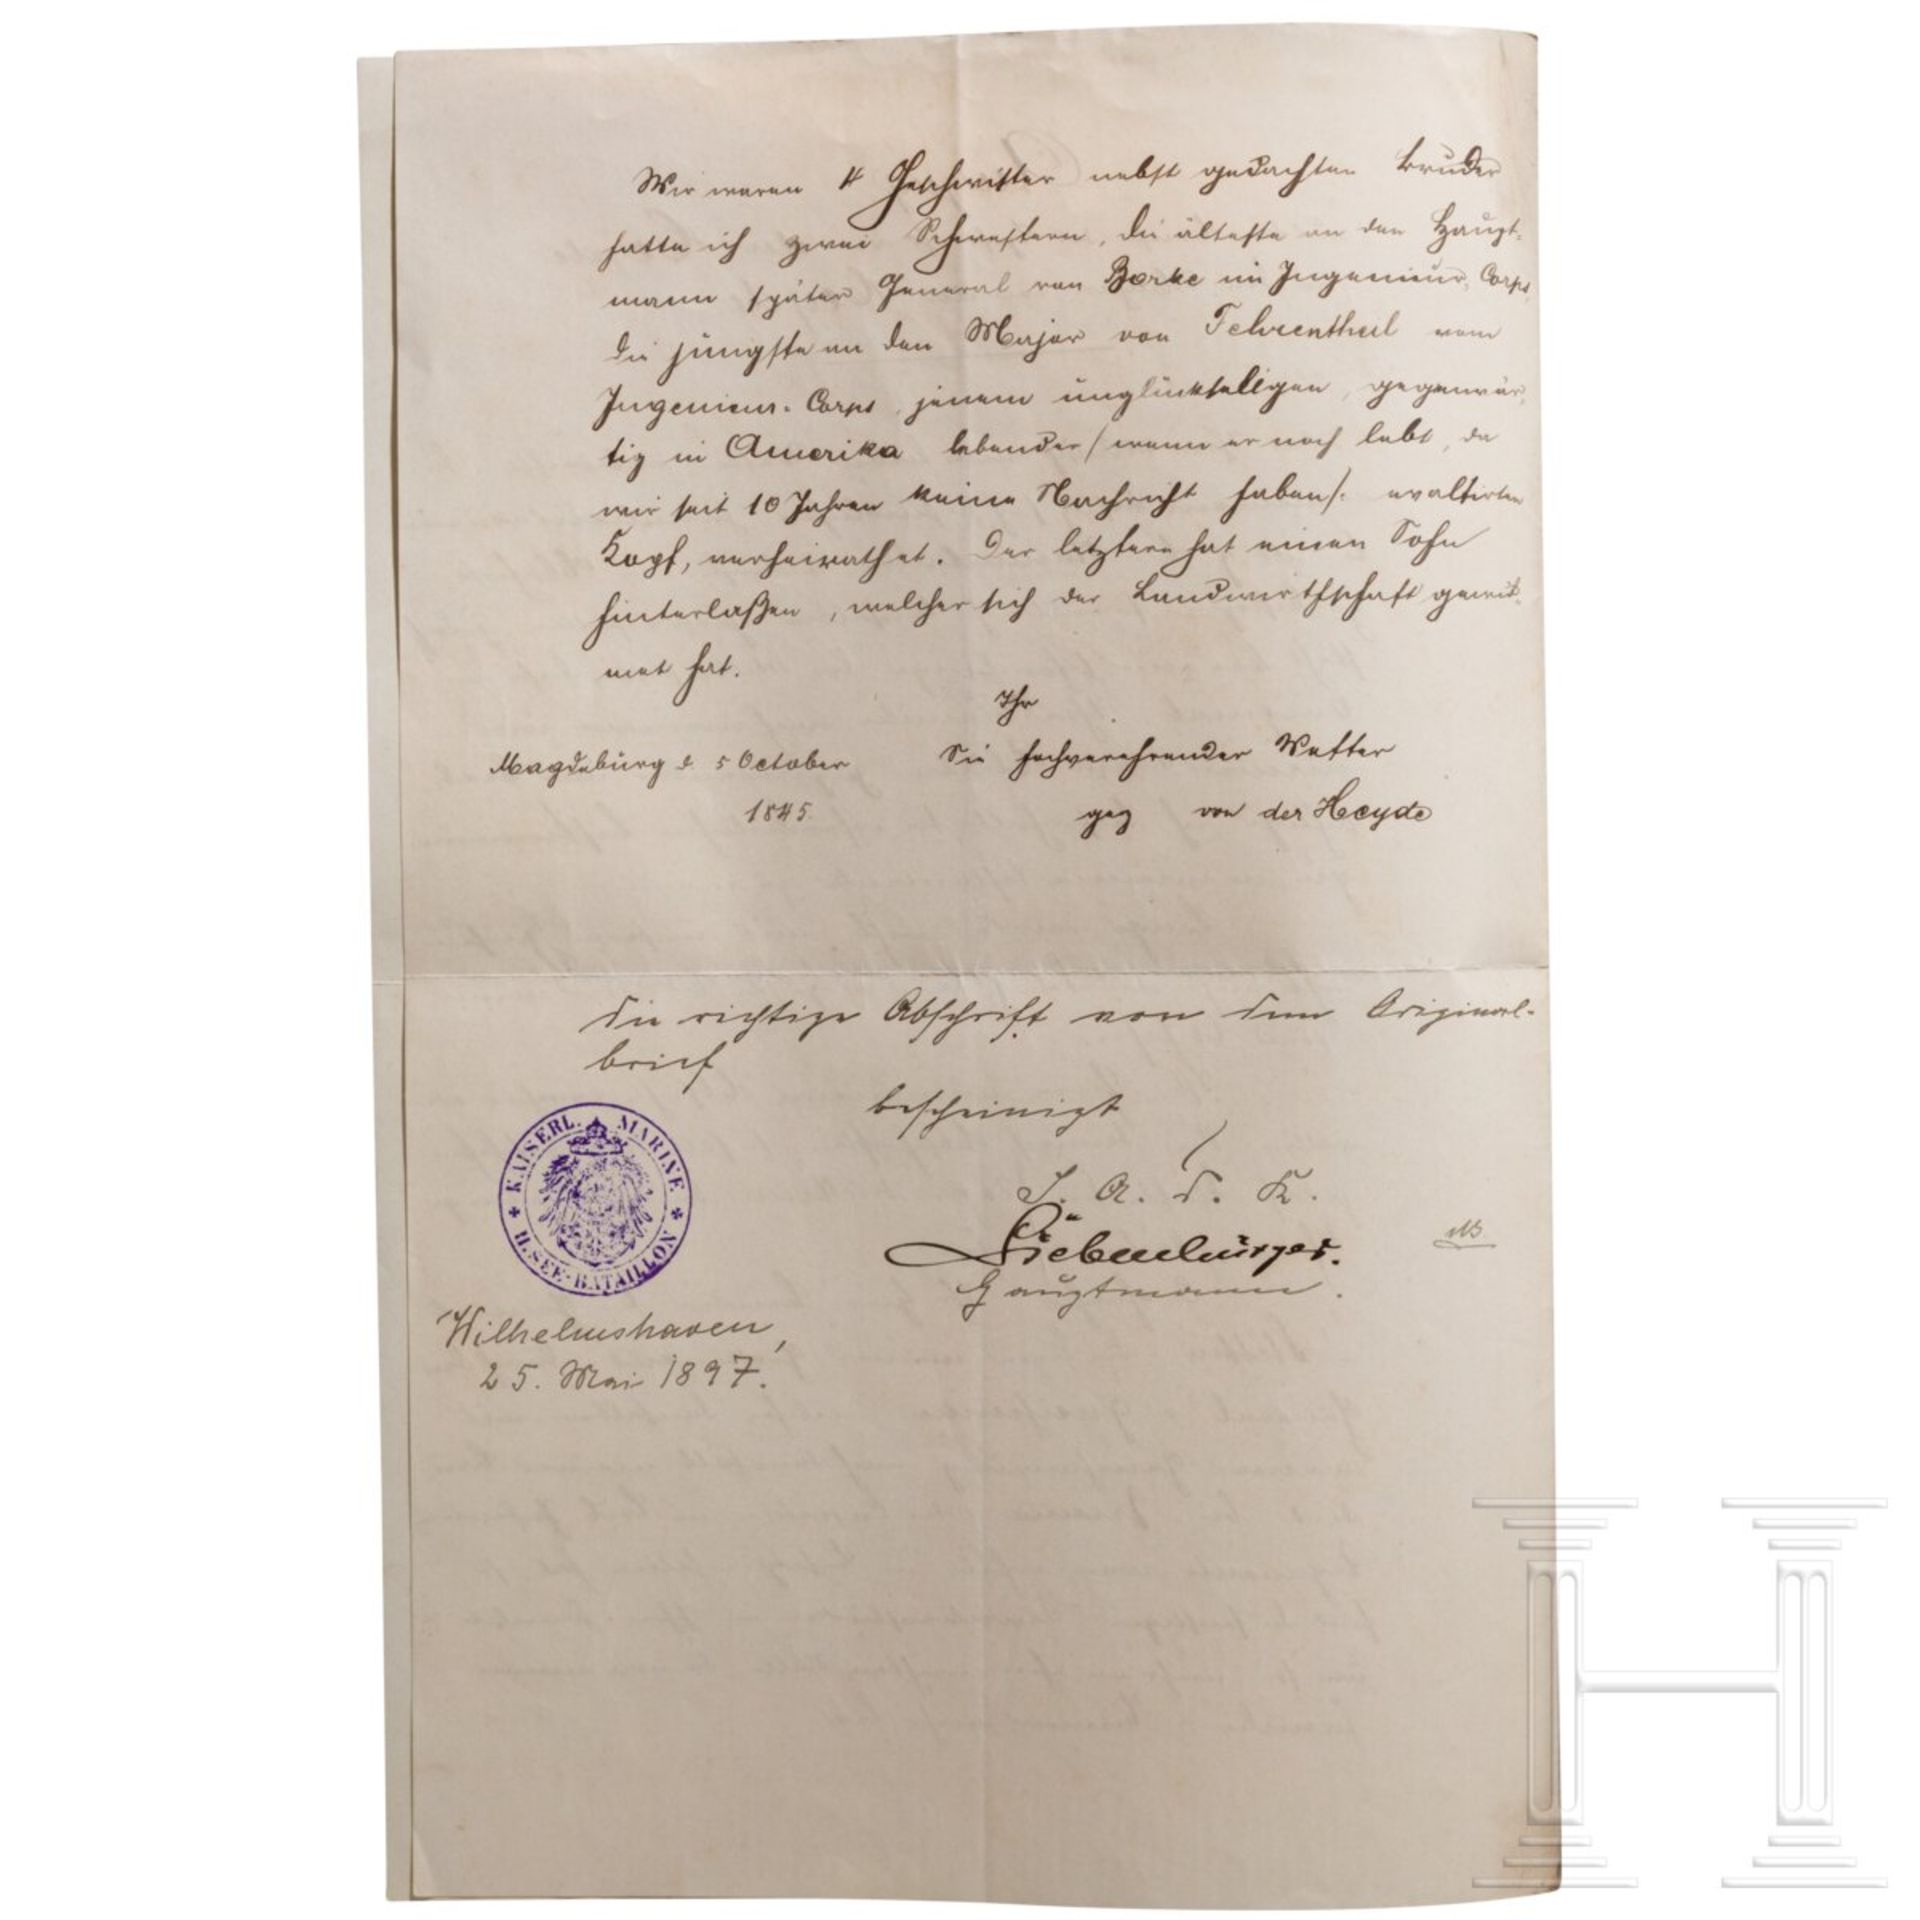 Wir waren 4 Geschwister nebst gedachten Bruder
hatte ich zwei Schwestern, die älteste an den Haupt-
mann später General von Borke im Ingenieur-Corps,
die jüngste an den Major von Fehrentheil vom
Ingenieur-Corps, jenem unglückseligen, gegenwär-
tig in Amerika lebender /wenn er noch lebt, da
wir seit 10 Jahren keine Nachricht haben/.
Kopf, verheirathet. Der letztere hat einen Sohn
hinterlaßen, welcher sich der Landwirthschaft gewid-
met hat.
Ihr
Sie hochverehrender Vetter
Magdeburg d. 5 October
1845.
gez von der Heyde
Die richtige Abschrift von dem Original-
brief
bescheinigt
KAISERL. MARINE
II. SEE-BATAILLON
J. A. d. K.
Siebenbürger.
Hauptmann.
Wilhelmshaven,
25. Mai 1897.
H